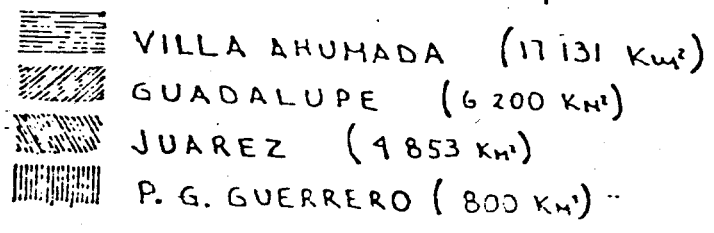 VILLA AHUMADA (17 131 Km²)
GUADALUPE (6 200 KM²)
JUAREZ (4 853 KM²)
P. G. GUERRERO (800 KM²)